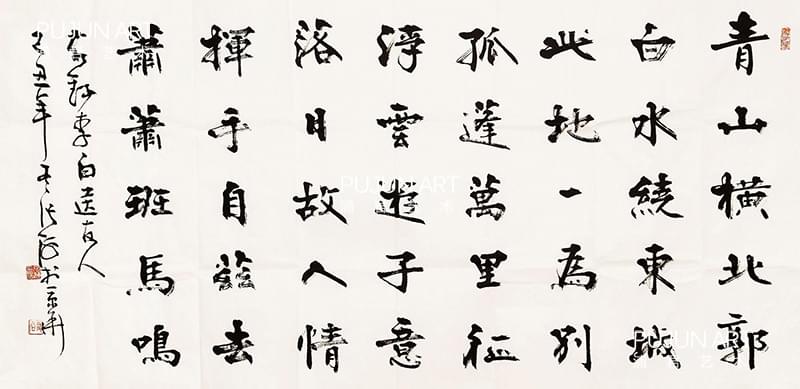 青山橫北郭
白水繞東城
此地一為別
孤蓬萬里征
浮雲遊子意
落日故人情
揮手自茲去
蕭蕭班馬鳴
李白送友人
丑年
PUJUN ART
PUJUN ART
PUJUN ART
PUJUN ART